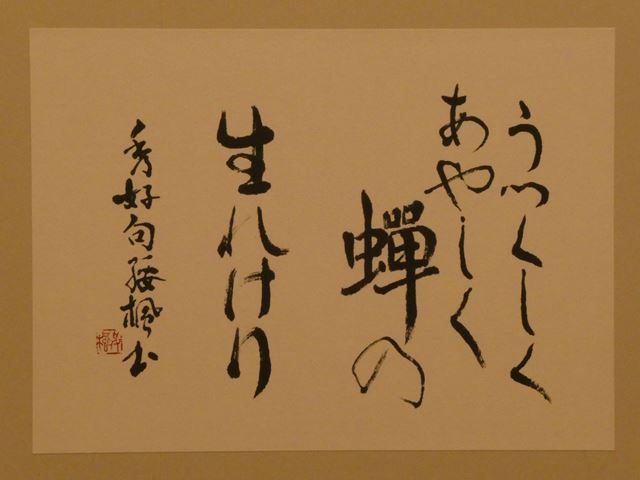 うつくしく
あやしく
蝉の
生れけり
秀好句 綏楓書